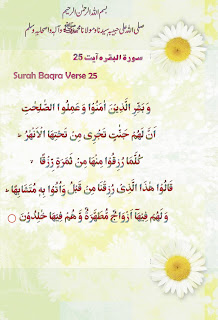 بسم اللہ الرحمن الرحیم
صلی اللہ علی حبیبہ سیدنا و مولانا محمد ﷺ وآلہ واصحابہ وسلم
سورة البقره آیت 25
Surah Baqra Verse 25
وَبَشِّرِ الَّذِيْنَ اٰمَنُوْا وَ عَمِلُوا الصّٰلِحٰتِ
اَنَّ لَهُمْ جَنّٰتٍ تَجْرِیْ مِنْ تَحْتِهَا الْاَنْهٰرُ ؕ
كُلَّمَا رُزِقُوْا مِنْهَا مِنْ ثَمَرَةٍ رِّزْقًا ۙ
قَالُوْا هٰذَا الَّذِیْ رُزِقْنَا مِنْ قَبْلُ وَاُتُوْا بِهٖ مُتَشَابِهًا ؕ
وَ لَهُمْ فِيْهَاۤ اَزْوَاجٌ مُّطَهَّرَةٌ ۙ وَّ هُمْ فِيْهَا خٰلِدُوْنَ ○